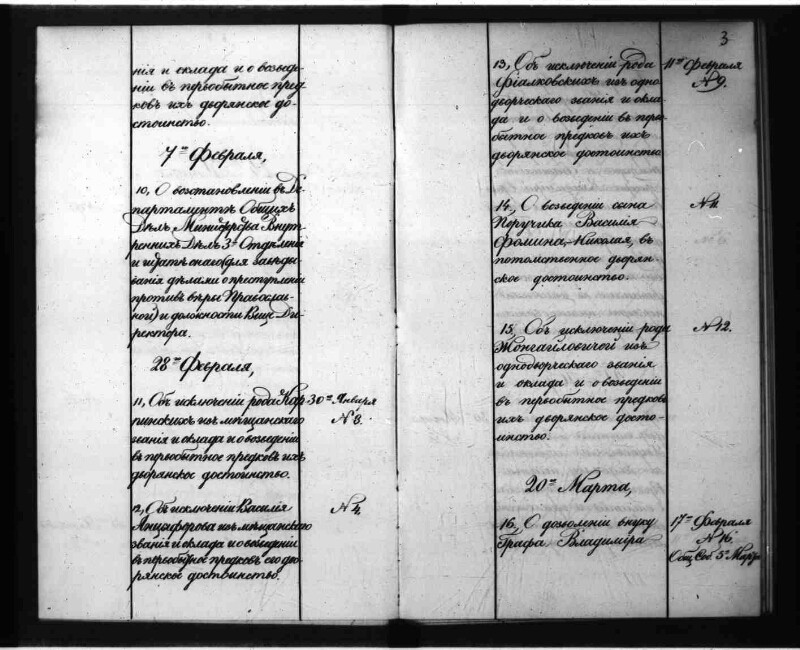 нія и оклада и о возведе-
ніи въ первобытное пред-
ковъ ихъ дворянское до-
стоинство.
7го Февраля,
10, О возстановленіи въ Де-
партаментѣ Общихъ
Дѣлъ Министерства Внут-
реннихъ Дѣлъ 3го Отдѣленія
и (для завѣды-
ванія дѣлами о преступленіи
противъ вѣры Православ-
ной) и должности Вице-Ди-
ректора.
28го Февраля,
11, Объ исключеніи рода Кар-
пинскихъ изъ мѣщанскаго
званія и оклада и о возведеніи
въ первобытное предковъ ихъ
дворянское достоинство.
30го Января
№ 3.
12, Объ исключеніи Василія
Анцыферова изъ мѣщанскаго
званія и оклада и о возведеніи
въ первобытное предковъ его дво-
рянское достоинство.
№ 4.
3
13, Объ исключеніи рода
Фіалковскихъ изъ одно-
дворческаго званія и окла-
да и о возведеніи въ перво-
бытное предковъ ихъ
дворянское достоинство
11го Февраля
№ 9.
14, О возведеніи сына
Поручика Василія
Фомина, Николая, въ
потомственное дворян-
ское достоинство.
15, Объ исключеніи рода
Жонгайловичей изъ
однодворческаго званія
и оклада и о возведеніи
въ первобытное предковъ
ихъ дворянское досто-
инство.
№ 12.
20го Марта,
16, О дозволеніи внуку
Графа Владиміра
17го Февраля
№ 16.
Общ. Соб. 5го Марта